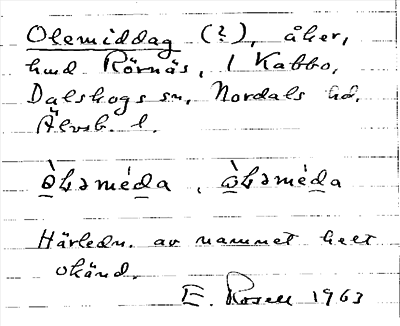 Olemiddag (?), åker,
hmd Rörnäs, 1 Kabbo,
Dalskogs sn, Nordals hd,
Älvsb. l.
Härledn. av namnet helt
okänd.
E. Rosell 1963